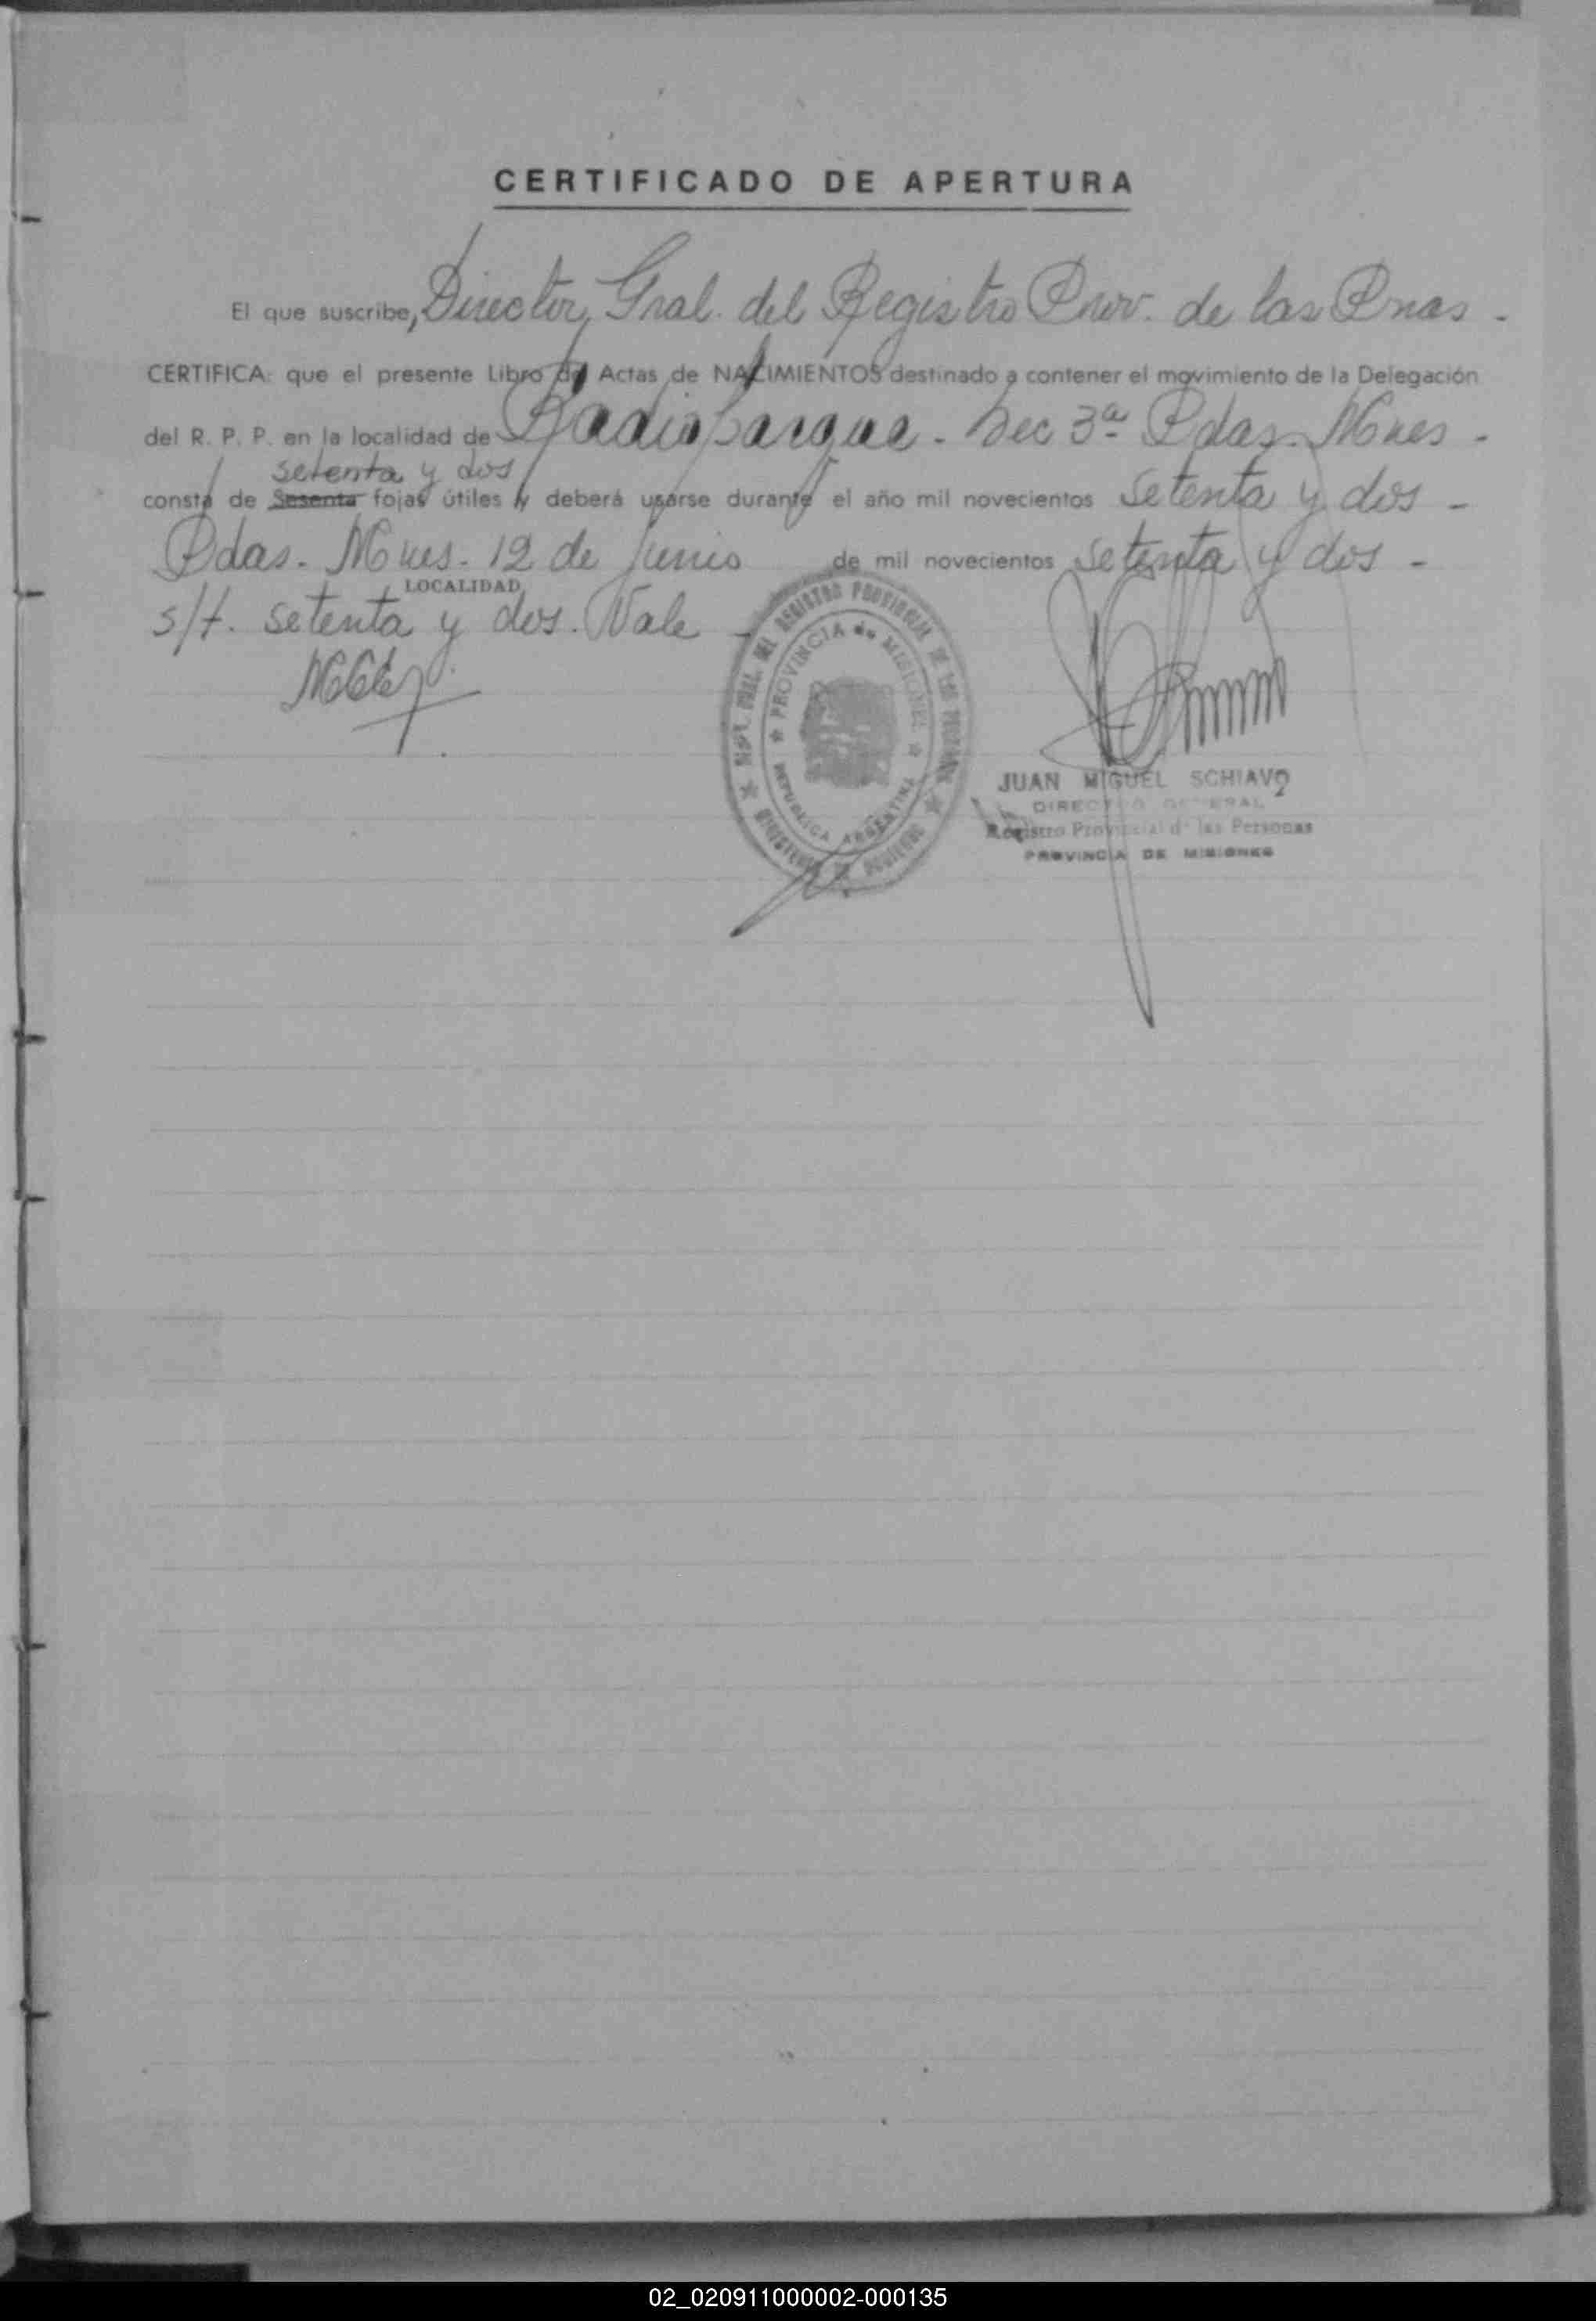 CERTIFICADO DE APERTURA
El que suscribe, Director Gral. del Registro Prov. de las Pnas.
CERTIFICA: que el presente Libro de Actas de NACIMIENTOS destinado a contener el movimiento de la Delegación
del R. P. P. en la localidad de Radioparque. Sec 3ª Pdas. Mnes.
setenta y dos
consta de Sesenta fojas útiles y deberá usarse durante el año mil novecientos setenta y dos -
Pdas. Mnes. 12 de junio de mil novecientos setenta y dos -
LOCALIDAD
s/t. setenta y dos. Vale -
DEL REGISTRO PROVINCIAL DE LAS PERSONAS
PROVINCIA de MISIONES
REPUBLICA ARGENTINA
MINISTERIO DE GOBIERNO
JUAN MIGUEL SCHIAVO
DIRECTOR GENERAL
Registro Provincial de las Personas
PROVINCIA DE MISIONES
02_020911000002-000135